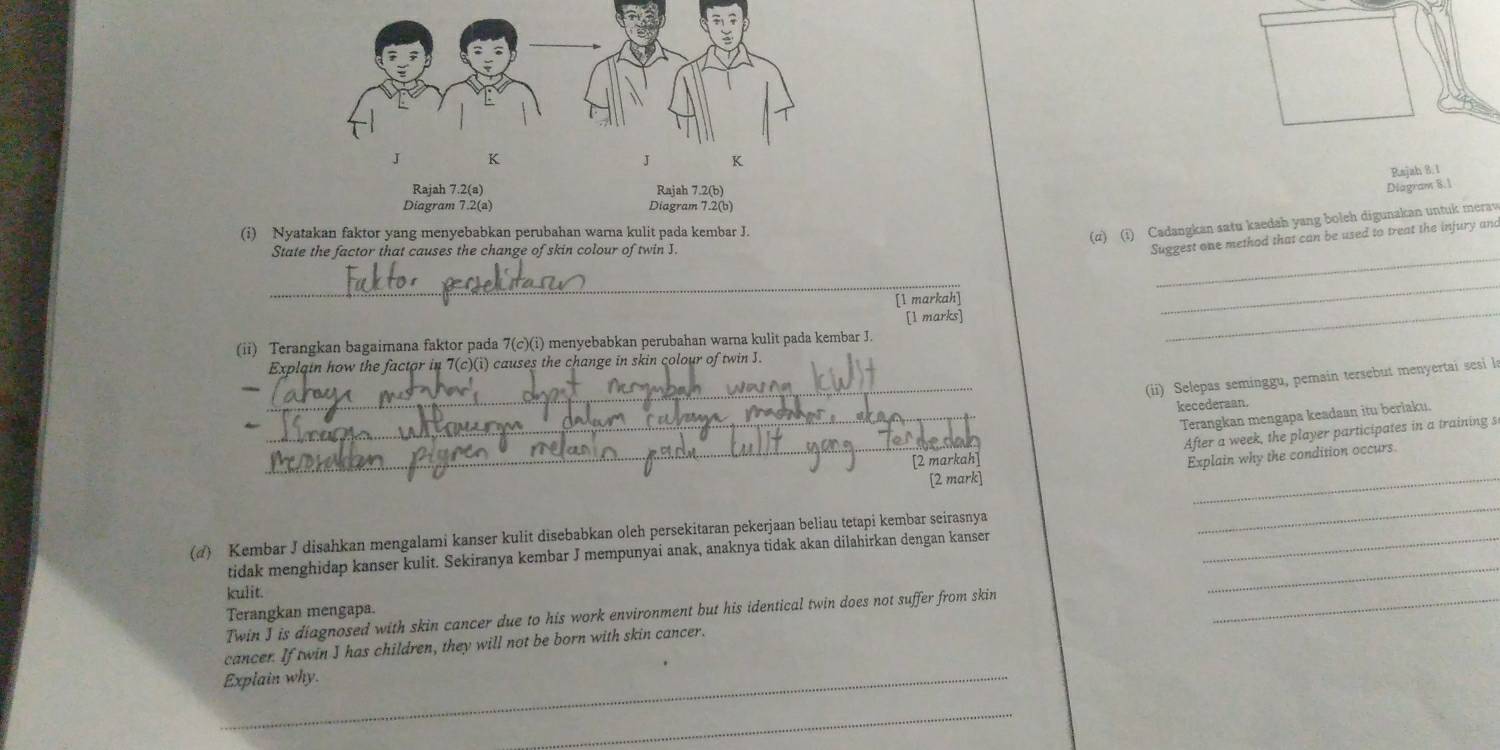 J K J K
Rajah 7.2(a) Rajah 7.2(b)
Diagram 7.2(a) Diagram 7.2(b)
(i) Nyatakan faktor yang menyebabkan perubahan warna kulit pada kembar J.
State the factor that causes the change of skin colour of twin J.
Faktor persekitaran
[1 markah]
[1 marks]
(ii) Terangkan bagaimana faktor pada 7(c)(i) menyebabkan perubahan warna kulit pada kembar J.
Explain how the factor in 7(c)(i) causes the change in skin colour of twin J.
- Cahaya matahari dapat mengubah warna kulit
- dalam cahaya matahari akan
pigmen melanin pada kulit yang terdedah
[2 markah]
[2 mark]
(d) Kembar J disahkan mengalami kanser kulit disebabkan oleh persekitaran pekerjaan beliau tetapi kembar seirasnya
tidak menghidap kanser kulit. Sekiranya kembar J mempunyai anak, anaknya tidak akan dilahirkan dengan kanser
kulit.
Terangkan mengapa.
Twin J is diagnosed with skin cancer due to his work environment but his identical twin does not suffer from skin
cancer. If twin J has children, they will not be born with skin cancer.
Explain why.
Rajah 8.1
Diagram 8.1
(a) (i) Cadangkan satu kaedah yang boleh digunakan untuk meraw
Suggest one method that can be used to treat the injury and
(ii) Selepas seminggu, pemain tersebut menyertai sesi la
kecederaan.
Terangkan mengapa keadaan itu berlaku.
After a week, the player participates in a training s
Explain why the condition occurs.